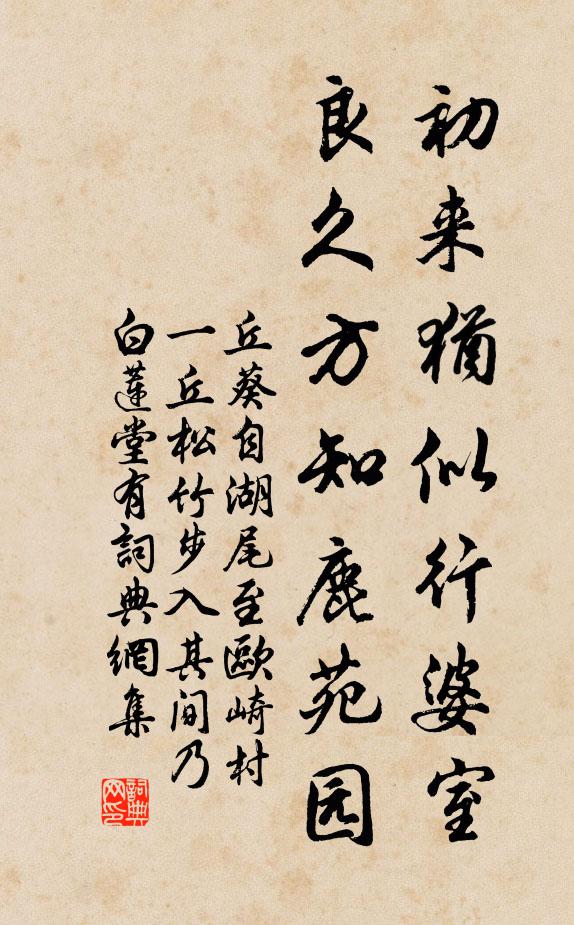 初来猶似行婆室
良久方知鹿苑园
丘葵自湖尾至歐崎村
一丘松竹步入其间乃
白蓮堂有詞典網集
詞典
网印